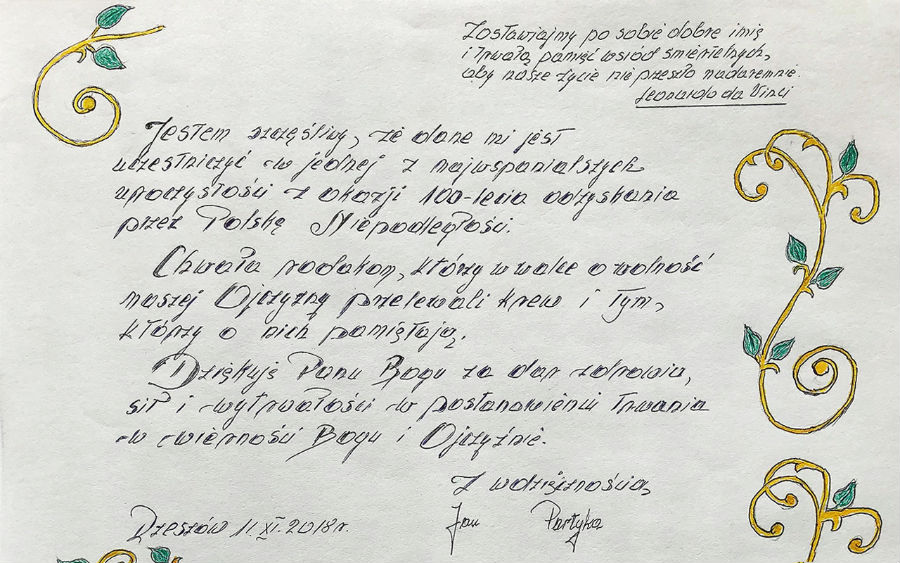 Zostawiajmy po sobie dobre imię
i trwałą pamięć wśród śmiertelnych,
aby nasze życie nie przeszło nadaremnie.
Leonardo da Vinci
Jestem szczęśliwy, że dane mi jest
uczestniczyć w jednej z najwspanialszych
uroczystości z okazji 100-lecia odzyskania
przez Polskę Niepodległości.
Chwała rodakom, którzy w walce o wolność
naszej Ojczyzny przelewali krew i tym,
którzy o nich pamiętają.
Dziękuję Panu Bogu za dar zdrowia,
sił i wytrwałości w postanowieniu trwania
w wierności Bogu i Ojczyźnie.
Z wdzięcznością
Jan Partyka
Rzeszów 11.XI.2018r.